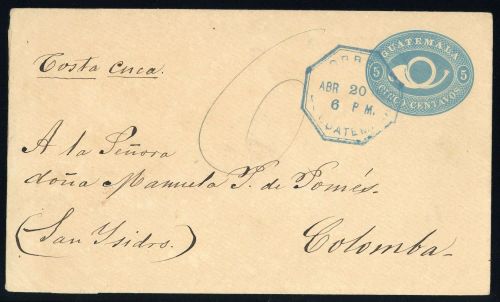 GUATEMALA
5 5
CINCO CENTAVOS
CORREO
ABR 20
6 P.M.
GUATEMALA
Costa Cuca.
A la Señora
doña Manuela P. de Pomés.
(San Ysidro.) Colomba.